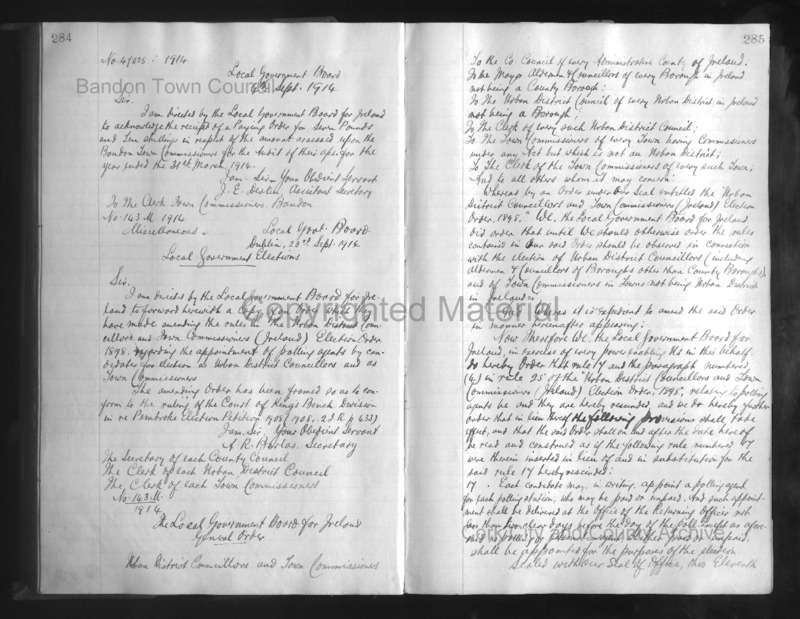 284
No 49025 : 1914
Local Government Board
4th Sept. 1914
Bandon Town Council
Sir.
I am directed by the Local Government Board for Ireland
to acknowledge the receipt of a Paying Order for Seven Pounds
and Ten shillings in respect of the amount assessed upon the
Bandon Town Commissioners for the Audit of their a/cs. for the
year ended the 31st March, 1914.
I am Sir Your Obedient Servant
J. E. Devlin Assistant Secretary
To The Clerk Town Commissioners. Bandon
No. 143.M 1914
Miscellaneous. Local Govt. Board.
Dublin, 23rd Sept. 1914.
Local Government Elections
Sir.
I am directed by the Local Government Board for Ire-
land to forward herewith a
have made amending the rules in the Urban District Coun-
cillors and Town Commissioners (Ireland) Election Order
1898. regarding the appointment of polling agents by can-
didates for election as Urban District Councillors and as
Town Commissioners
The amending Order has been framed so as to con-
form to the ruling of the Court of King's Bench Division
in re Pembroke Election Petition 1908 (1908. 2 I R p 433)
I am Sir, Your Obedient Servant
A. R. Barlas. Secretary
The Secretary of each County Council
The Clerk of each Urban District Council
The Clerk of each Town Commissioners
No. 143.M.
1914.
The Local Government Board for Ireland
General Order
Urban District Councillors and Town Commissioners
285
To the Co Council of every Administrative County of Ireland;
To the Mayor Aldermen & Councillors of every Borough in Ireland
not being a County Borough;
To The Urban District Council of every Urban District in Ireland
not being a Borough;
To The Clerk of every such Urban District Council;
To The Town Commissioners of every Town having Commissioners
under any Act but which is not an Urban District;
To The Clerk of the Town Commissioners of every such Town;
And to all others whom it may concern:
Whereas by an Order under Our Seal entitled the "Urban
District Councillors and Town Commissioners (Ireland) Election
Order, 1898," We, the Local Government Board for Ireland
did order that until We should otherwise order the rules
contained in Our said Order should be observed in connection
with the election of Urban District Councillors (including
Aldermen & Councillors of Boroughs other than County Boroughs)
and of Town Commissioners in Towns not being Urban Districts
in Ireland:
And Whereas it is expedient to amend the said Order
in manner hereinafter appearing:
Now Therefore We. the Local Government Board for
Ireland, in exercise of every power enabling Us in this behalf.
do hereby Order that rule 17 and the paragraph numbered
in rule 25 of the "Urban District Councillors and Town
Commissioners (Ireland) Election Order, 1898," relating to polling
agents be and they are hereby rescinded and we do hereby further
order that in lieu thereof the following provisions shall take
effect, and that the said Order shall on and after the date hereof
be read and construed as if the following rule numbered 17
were therein inserted in lieu of and in substitution for the
said rule 17 hereby rescinded:
17. Each candidate may, in writing, appoint a polling agent
for each polling station, who may be paid or unpaid. And such appoint-
ment shall be delivered at the Office of the Returning Officer not
less than two clear days before the day of the Poll. Except as afore-
said no polling
shall be appointed for the purposes of the election
Sealed with our Seal of Office, this Eleventh
Copyrighted Material
Cork City and County Archive